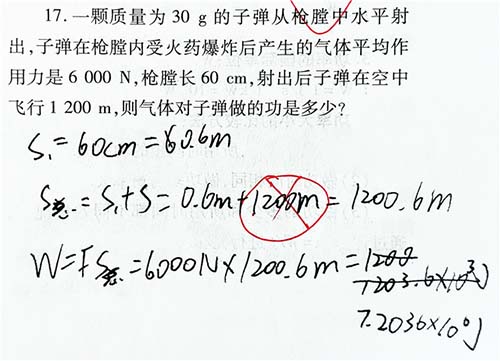 17.一颗质量为 30 g 的子弹从枪膛中水平射
出,子弹在枪膛内受火药爆炸后产生的气体平均作
用力是 6 000 N,枪膛长 60 cm,射出后子弹在空中
飞行 1 200 m,则气体对子弹做的功是多少?
S₁=60cm=0.6m
S总=S₁+S=0.6m+1200m=1200.6m
W=FS总=6000N×1200.6m=1200
1203.6×10³J
7.2036×10⁶J